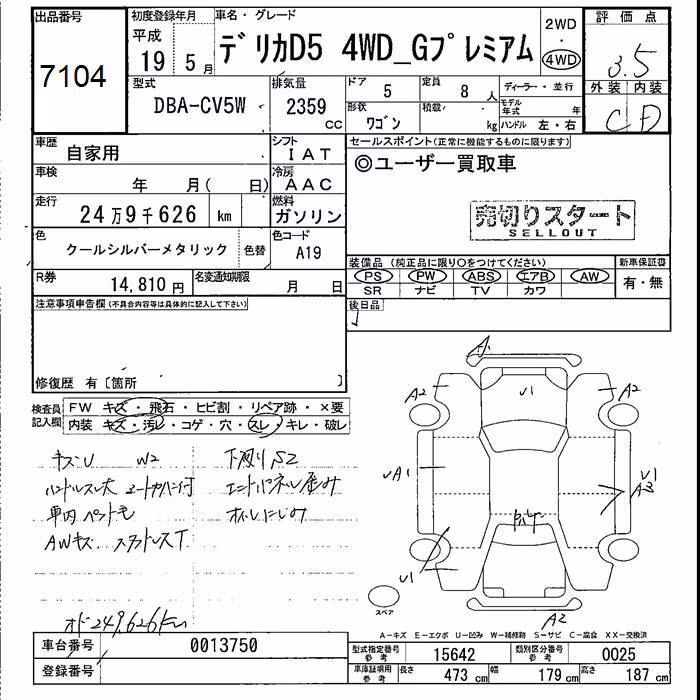 出品番号
7104
初度登録年月
平成
19 5 月
車名・グレード
デリカD5 4WD_Gプレミアム
2WD
・
4WD
評価点
3.5
外装 内装
C D
型式
DBA-CV5W
排気量
2359
CC
ドア 5
定員 8 人
ディーラー・並行
形状 ワゴン
積載 kg
モデル年式 年
ハンドル 左・右
車歴 自家用
シフト IAT
車検 年 月( 日)
冷房 AAC
走行 24万9千626 km
燃料 ガソリン
色 クールシルバーメタリック 色替
色コード A19
R券 14,810 円
名変通知期限 月 日
セールスポイント(正常に機能するものに限ります)
◎ユーザー買取車
売切りスタート
SELLOUT
装備品 (純正品に限り○をつけてください)
PS PW ABS エアB AW
SR ナビ TV カワ
新車保証書
有・無
後日品
注意事項申告欄(不具合内容等は具体的に記入して下さい)
修復歴 有〔箇所 〕
検査員記入欄
FW キズ・飛石・ヒビ割・リペア跡・×要
内装 キズ・汚レ・コゲ・穴・スレ・キレ・破レ
キズU W2 下廻りS2
ハンドルスレ大 シートカバー付
車内ペット毛
AWキズ スタッドレスT
オド249,626Km
A
A2
V1
A2
VA1
V1
A3
V1
A2
スペア
A-キズ E-エクボ U-凹み W-補修跡 S-サビ C-腐食 XX-交換済
車台番号 0013750
登録番号
型式指定番号 参考 15642
類別区分番号 参考 0025
車庫証明用 参考 長さ 473 cm 幅 179 cm 高さ 187 cm